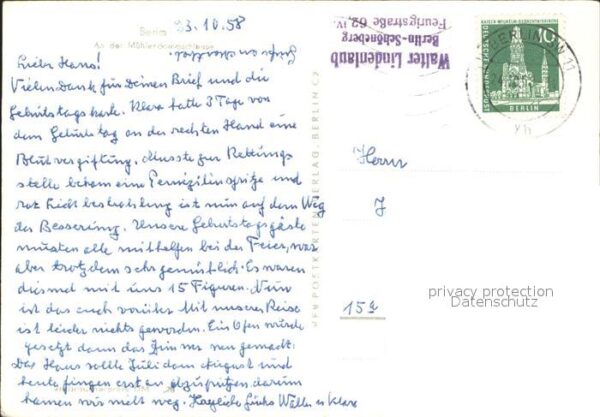 Berlin
23.10.58
An der Mühlendammschleuse
Lieber Hans!
Vielen Dank für Deinen Brief und die
Geburtstagskarte. Klara hatte 3 Tage vor
dem Geburtstag an der rechten Hand eine
Blutvergiftung. Musste zur Rettungs
stelle bekam eine Penizilinspritze und
rot Licht bestrahlung ist nun auf dem Weg
der Besserung. Unsere Geburtstagsgäste
mussten alle mithelfen bei der Feier, war
aber trotzdem sehr gemütlich. Es waren
diesmal mit uns 15 Figuren. Nun
ist das auch vorüber. Mit unserer Reise
ist leider nichts geworden. Ein Ofen wurde
gesetzt dann das Zimmer neu gemacht.
Das Haus sollte Juli dann August und
heute fingen erst an abzuputzen. darum
kamen wir nicht weg. Herzliche Grüße Walter u Klara
Walter Lindenlaub
Berlin-Schöneberg
Feurigstraße 62, IV.
KAISER-WILHELM-GEDÄCHTNISKIRCHE
10
DEUTSCHE BUNDESPOST
BERLIN
BERLIN SW 11
yh
Herrn
J
15a
POSTKARTENVERLAG, BERLIN C2
privacy protection
Datenschutz